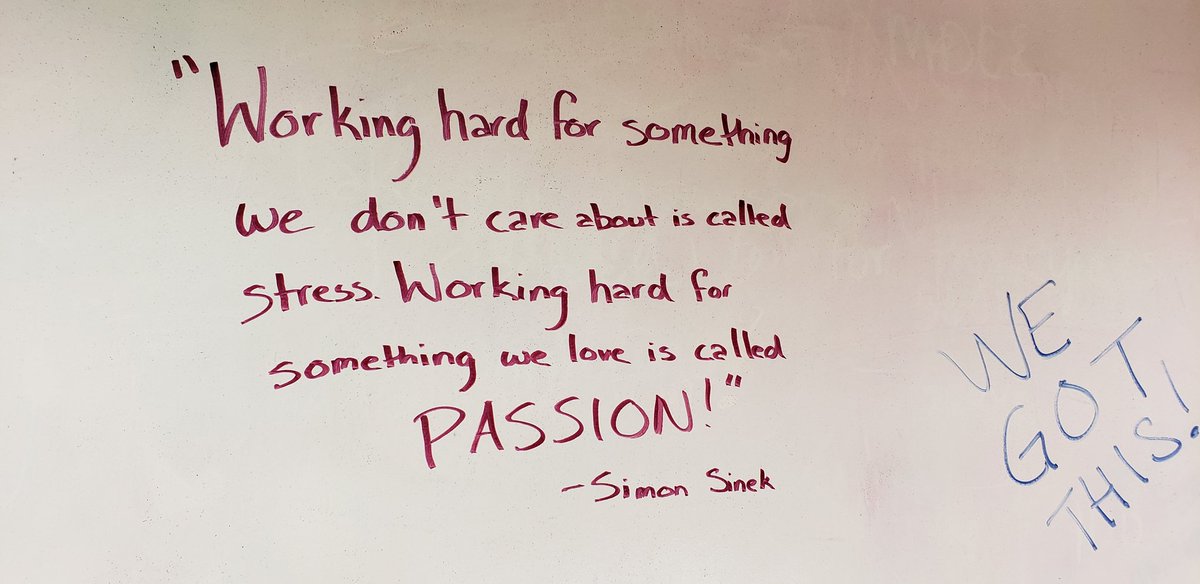 "Working hard for something
we don't care about is called
stress. Working hard for
something we love is called
PASSION!"
-Simon Sinek
WE
GOT
THIS!